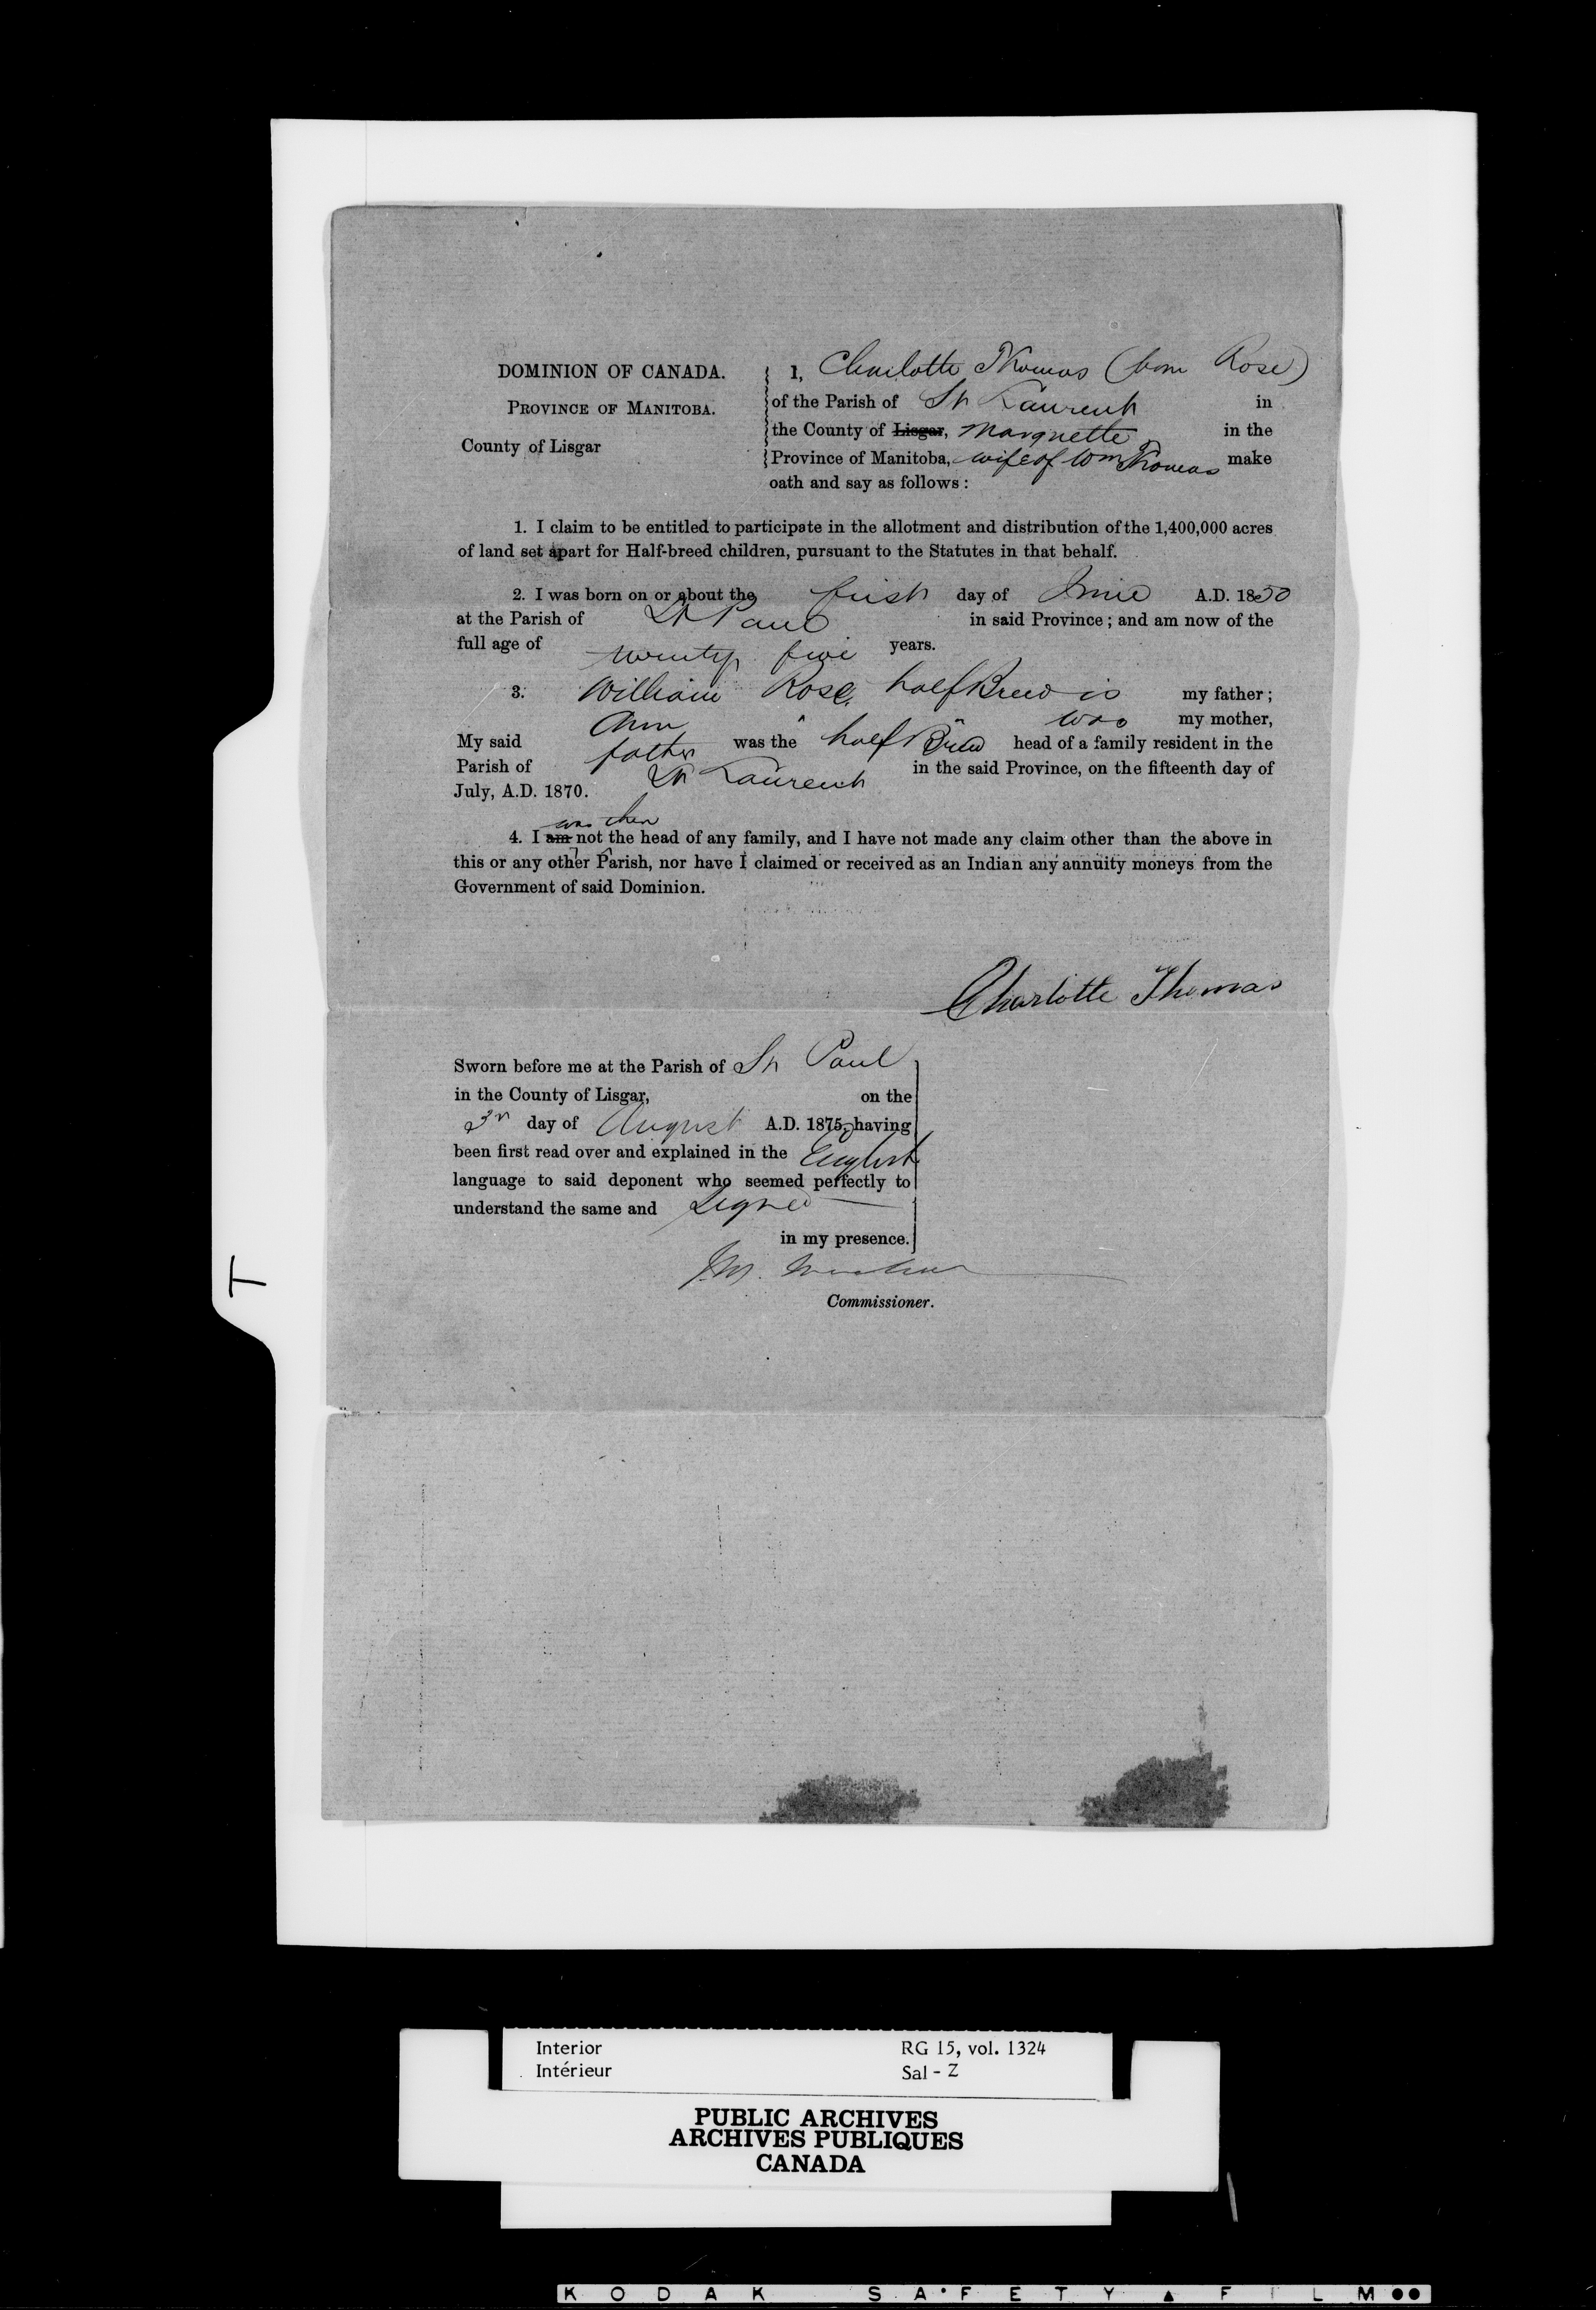 DOMINION OF CANADA.
PROVINCE OF MANITOBA.
County of Lisgar
I, Charlotte Thomas (born Rose)
of the Parish of St Laurent in
the County of Lisgar, Marquette in the
Province of Manitoba, wife of Wm Thomas make
oath and say as follows :
1. I claim to be entitled to participate in the allotment and distribution of the 1,400,000 acres
of land set apart for Half-breed children, pursuant to the Statutes in that behalf.
2. I was born on or about the first day of June A.D. 1850
at the Parish of St Paul in said Province ; and am now of the
full age of twenty five years.
3. William Rose, half Breed is my father ;
Ann " " was my mother,
My said father was the half Breed head of a family resident in the
Parish of St Laurent in the said Province, on the fifteenth day of
July, A.D. 1870.
was then
4. I am not the head of any family, and I have not made any claim other than the above in
this or any other Parish, nor have I claimed or received as an Indian any annuity moneys from the
Government of said Dominion.
Charlotte Thomas
Sworn before me at the Parish of St Paul
in the County of Lisgar, on the
3r day of August A.D. 1875, having
been first read over and explained in the English
language to said deponent who seemed perfectly to
understand the same and signed
in my presence.
J.M.
Commissioner.
T
Interior RG 15, vol. 1324
Intérieur Sal - Z
PUBLIC ARCHIVES
ARCHIVES PUBLIQUES
CANADA
KODAK SAFETY FILM